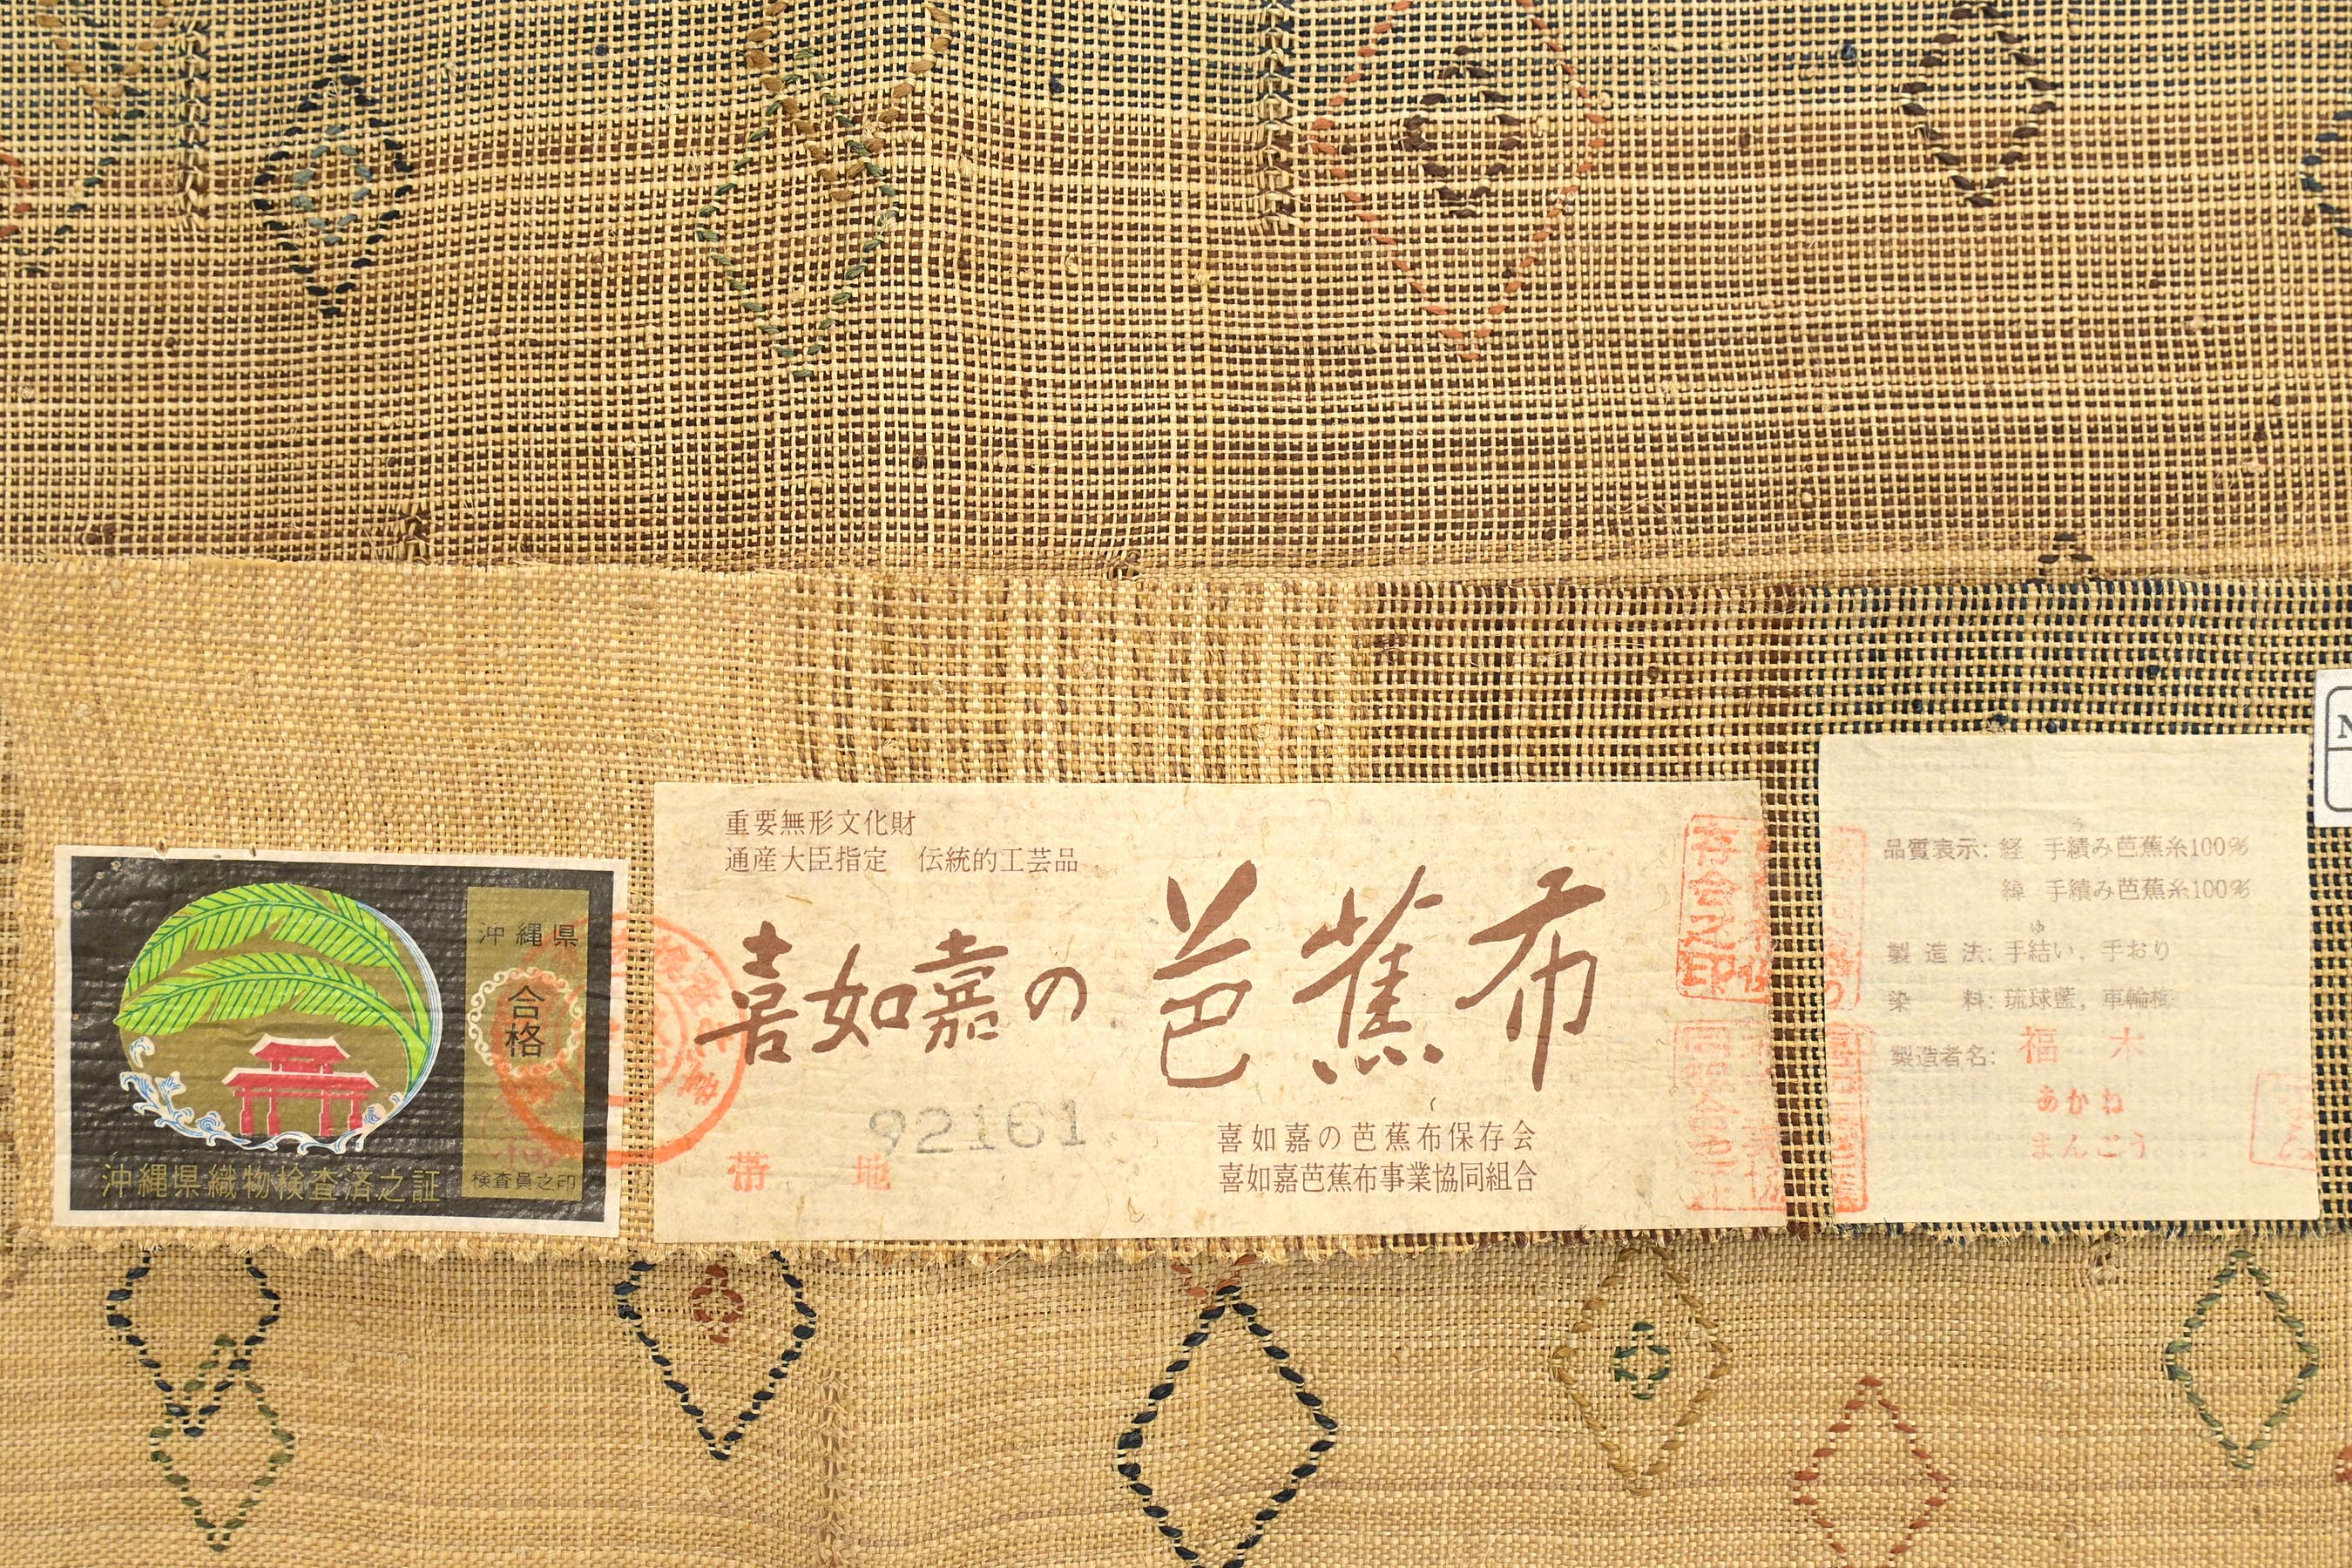 沖縄県
合格
検査員之印
沖縄県織物検査済之証
重要無形文化財
通産大臣指定　伝統的工芸品
喜如嘉の芭蕉布
92161
帯　地
喜如嘉の芭蕉布保存会
喜如嘉芭蕉布事業協同組合
存会之印
品質表示: 経　手績み芭蕉糸100%
緯　手績み芭蕉糸100%
ゆ
製 造 法: 手結い, 手おり
染　　料: 琉球藍, 車輪梅
福　木
製造者名:
あかね
まんごう
N